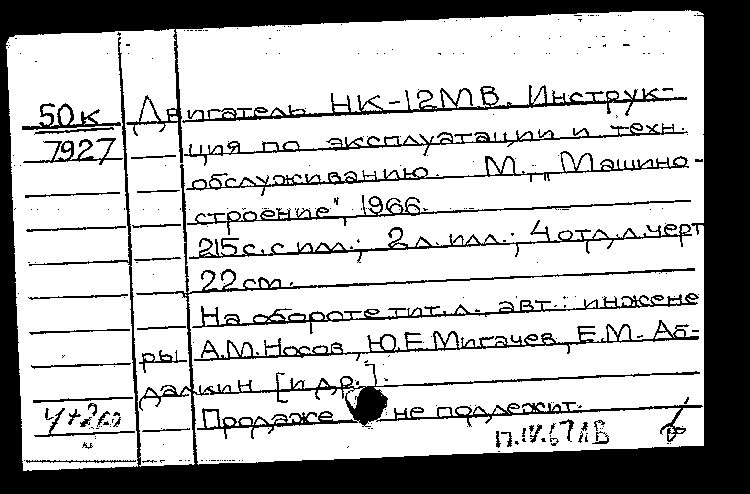 50к Двигатель НК-12МВ. Инструк-
7927 ция по эксплуатации и техн.
обслуживанию. М., „Машино-
строение", 1966.
215 с. с илл.; 2 л. илл.; 4 отд. л. черт
22 см.
На обороте тит. л., авт.: инжене
ры А.М. Носов, Ю.Е. Мигачев, Е.М. Аб-
далкин [и др.].
Продаже не подлежит.
17.IV.67